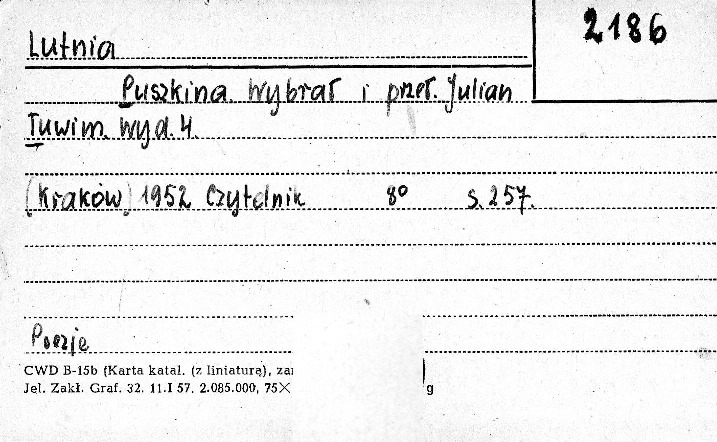 2186
Lutnia
Puszkina. Wybrał i przeł. Julian
Tuwim. Wyd. 4.
[Kraków] 1952 Czytelnik 8° s. 257.
Poezje
CWD B-15b (Karta katal. (z liniaturą), zai
Jel. Zakł. Graf. 32. 11.I 57. 2.085.000, 75X g